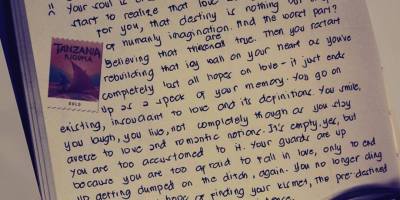 Your soul is
start to realize that love
for you, that destiny is nothing but
of humanly imagination. And the worst part?
Believing that they are not true. Then you restart
rebuilding that icy wall on your heart as you've
completely lost all hopes on love - it just ends
up as a speck of your memory. You go on
existing, insouciant to love and its definitions. You smile,
you laugh, you live, not completely though as you stay
averse to love and romantic notions. It's empty, yes, but
you are too accustomed to it. Your guards are up
because you are too afraid to fall in love, only to end
up getting dumped on the ditch, again. You no longer cling
hope of finding your kismet, the pre-destined
TANZANIA
KIGOMA